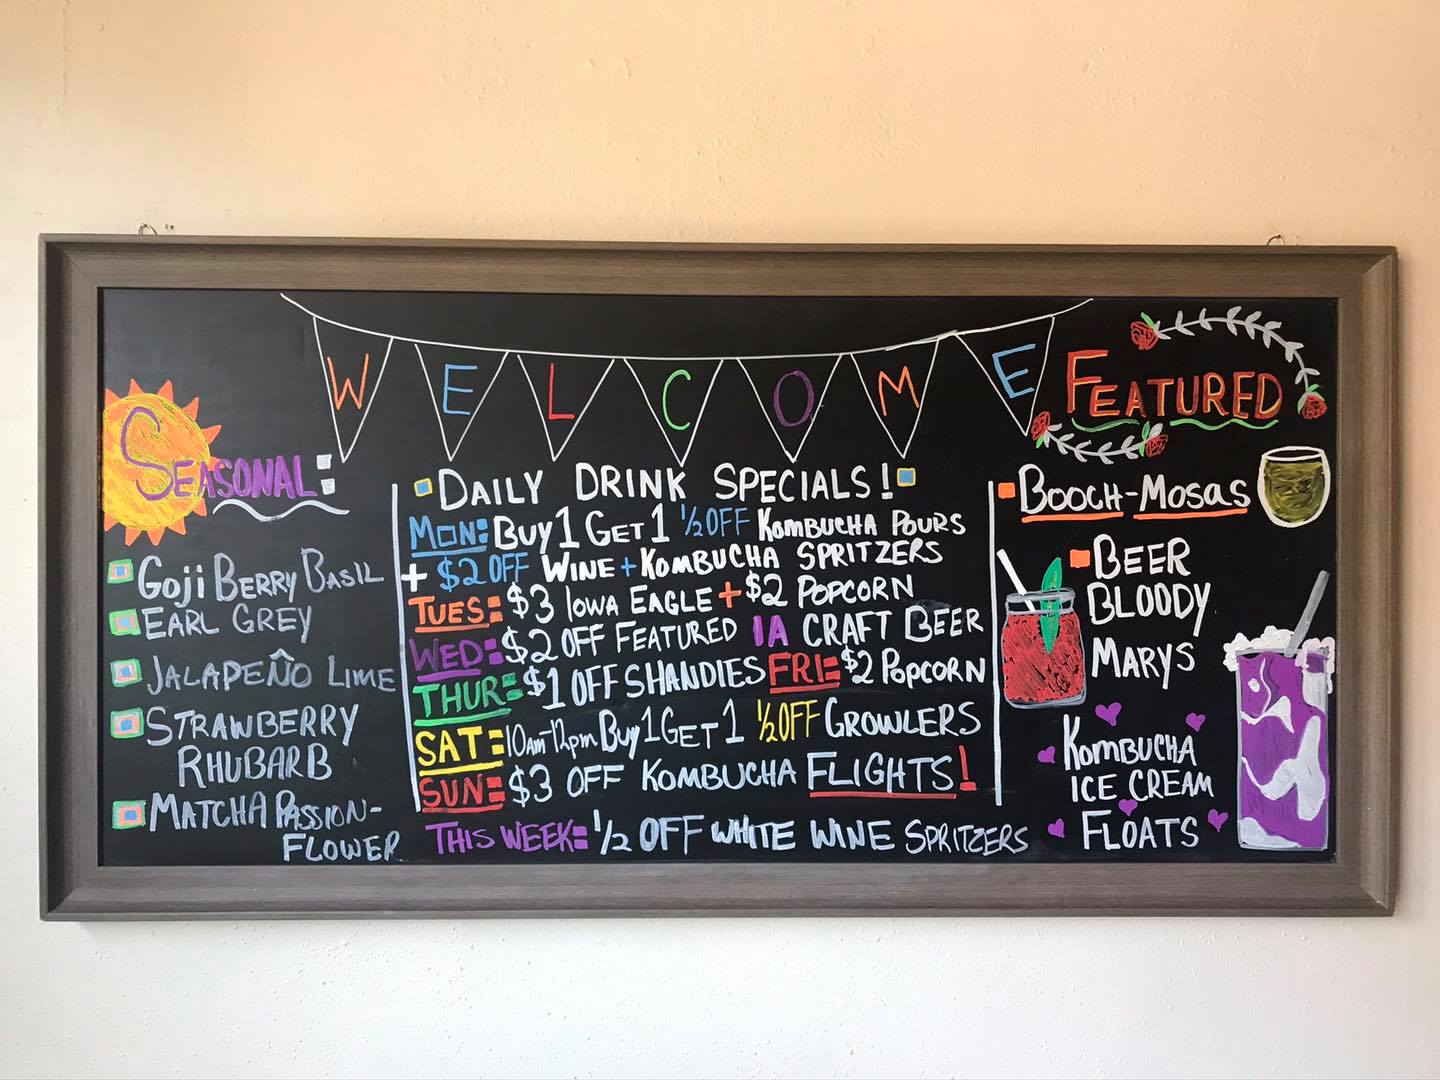 WELCOME
SEASONAL:
GOJI BERRY BASIL
EARL GREY
JALAPEÑO LIME
STRAWBERRY
RHUBARB
MATCHA PASSION-
FLOWER
DAILY DRINK SPECIALS!
MON: BUY 1 GET 1 1/2 OFF KOMBUCHA POURS
+ $2 OFF WINE + KOMBUCHA SPRITZERS
TUES: $3 IOWA EAGLE + $2 POPCORN
WED: $2 OFF FEATURED IA CRAFT BEER
THUR: $1 OFF SHANDIES FRI: $2 POPCORN
SAT: 10am-12pm BUY 1 GET 1 1/2 OFF GROWLERS
SUN: $3 OFF KOMBUCHA FLIGHTS!
THIS WEEK: 1/2 OFF WHITE WINE SPRITZERS
FEATURED
BOOCH-MOSAS
BEER
BLOODY
MARYS
KOMBUCHA
ICE CREAM
FLOATS